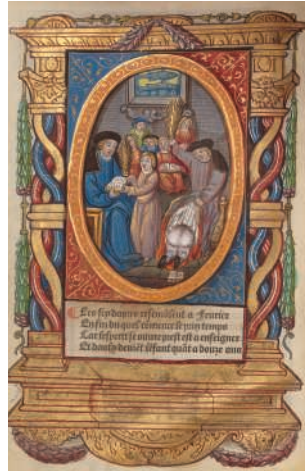 Les six dautre resemblent a Feurier
En fin du quel cõmence le prin temps
Car lesperit se ouure prest est a enseigner
Et doulx deuiẽt lẽfant quãt a douze ans